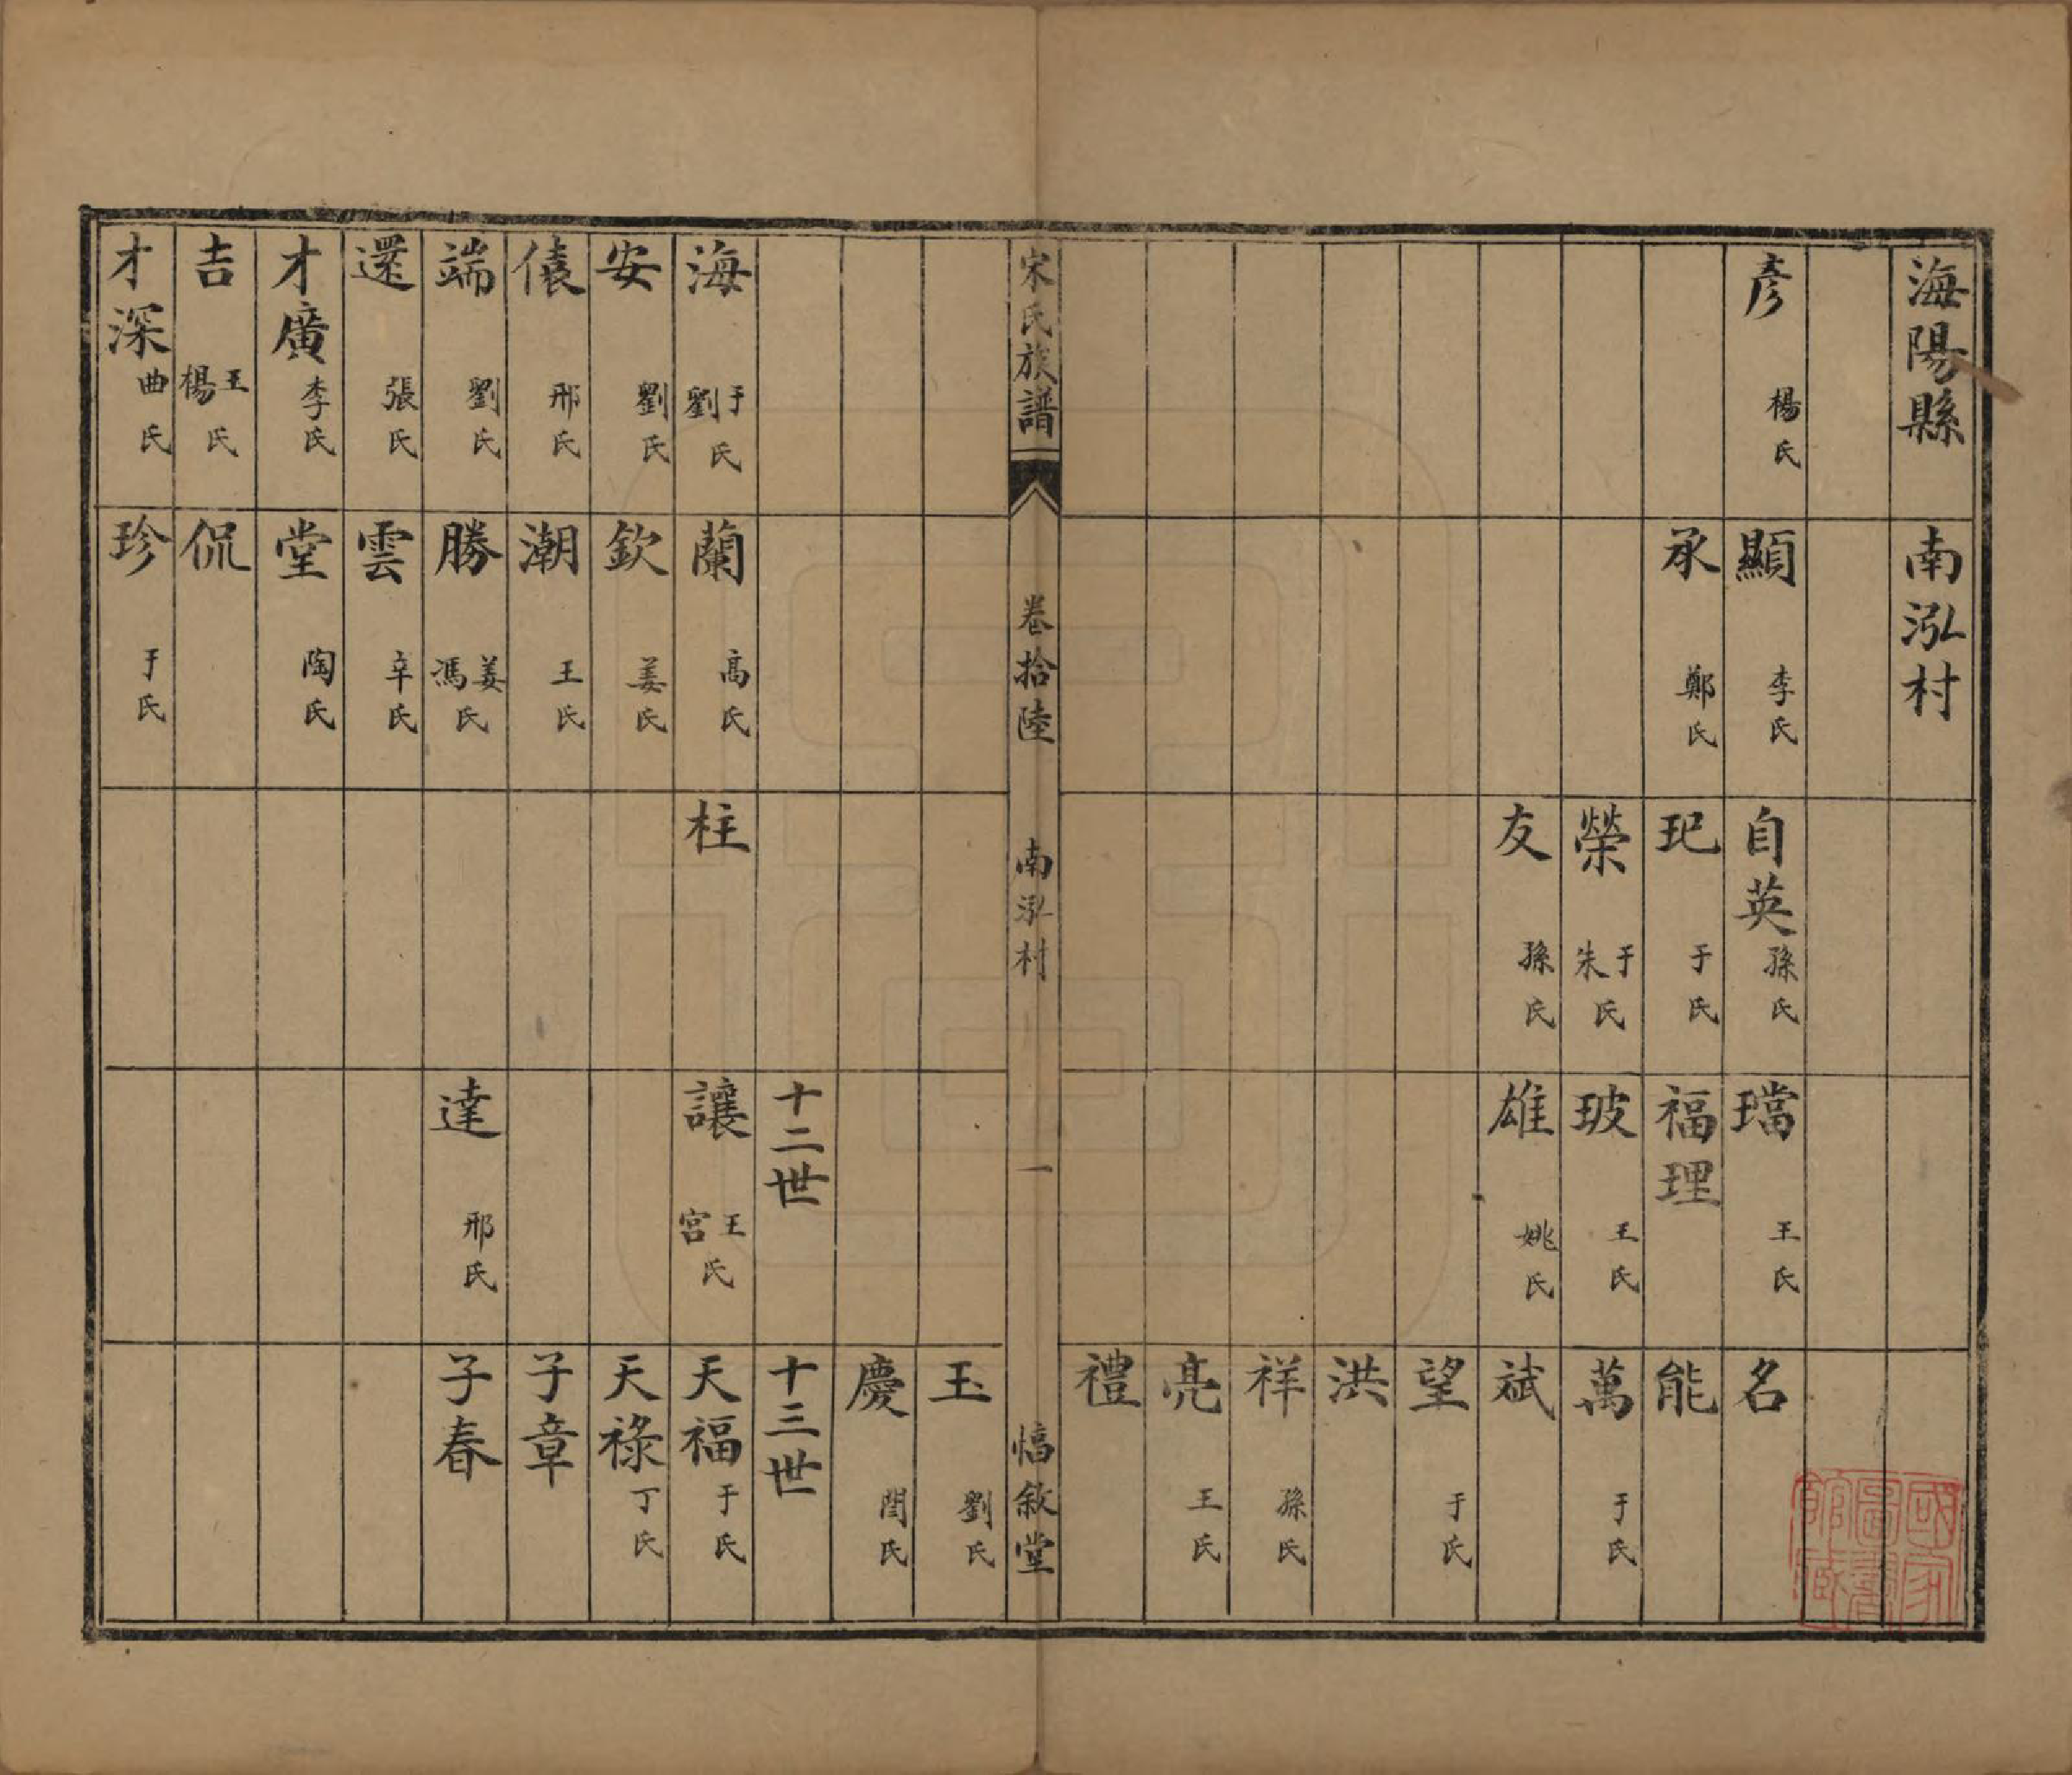 海陽縣 南泓村
彥 楊氏 顯 李氏 自英 孫氏 璫 王氏 名
承 鄭氏 玘 于氏 福理 能
榮 于朱氏 玻 王氏 萬 于氏
友 孫氏 雄 姚氏 斌
望 于氏
洪
祥 孫氏
亮 王氏
禮
宋氏族譜 卷拾陸 南泓村 一 惇敘堂
玉 劉氏
慶 閆氏
十二世 十三世
海 于劉氏 蘭 高氏 柱 讓 王宮氏 天福 于氏
安 劉氏 欽 姜氏 天祿 丁氏
儇 邢氏 潮 王氏 子章
端 劉氏 勝 姜馮氏 達 邢氏 子春
還 張氏 雲 辛氏
才廣 李氏 堂 陶氏
吉 王楊氏 侃
才深 曲氏 珍 于氏
國家圖書館藏